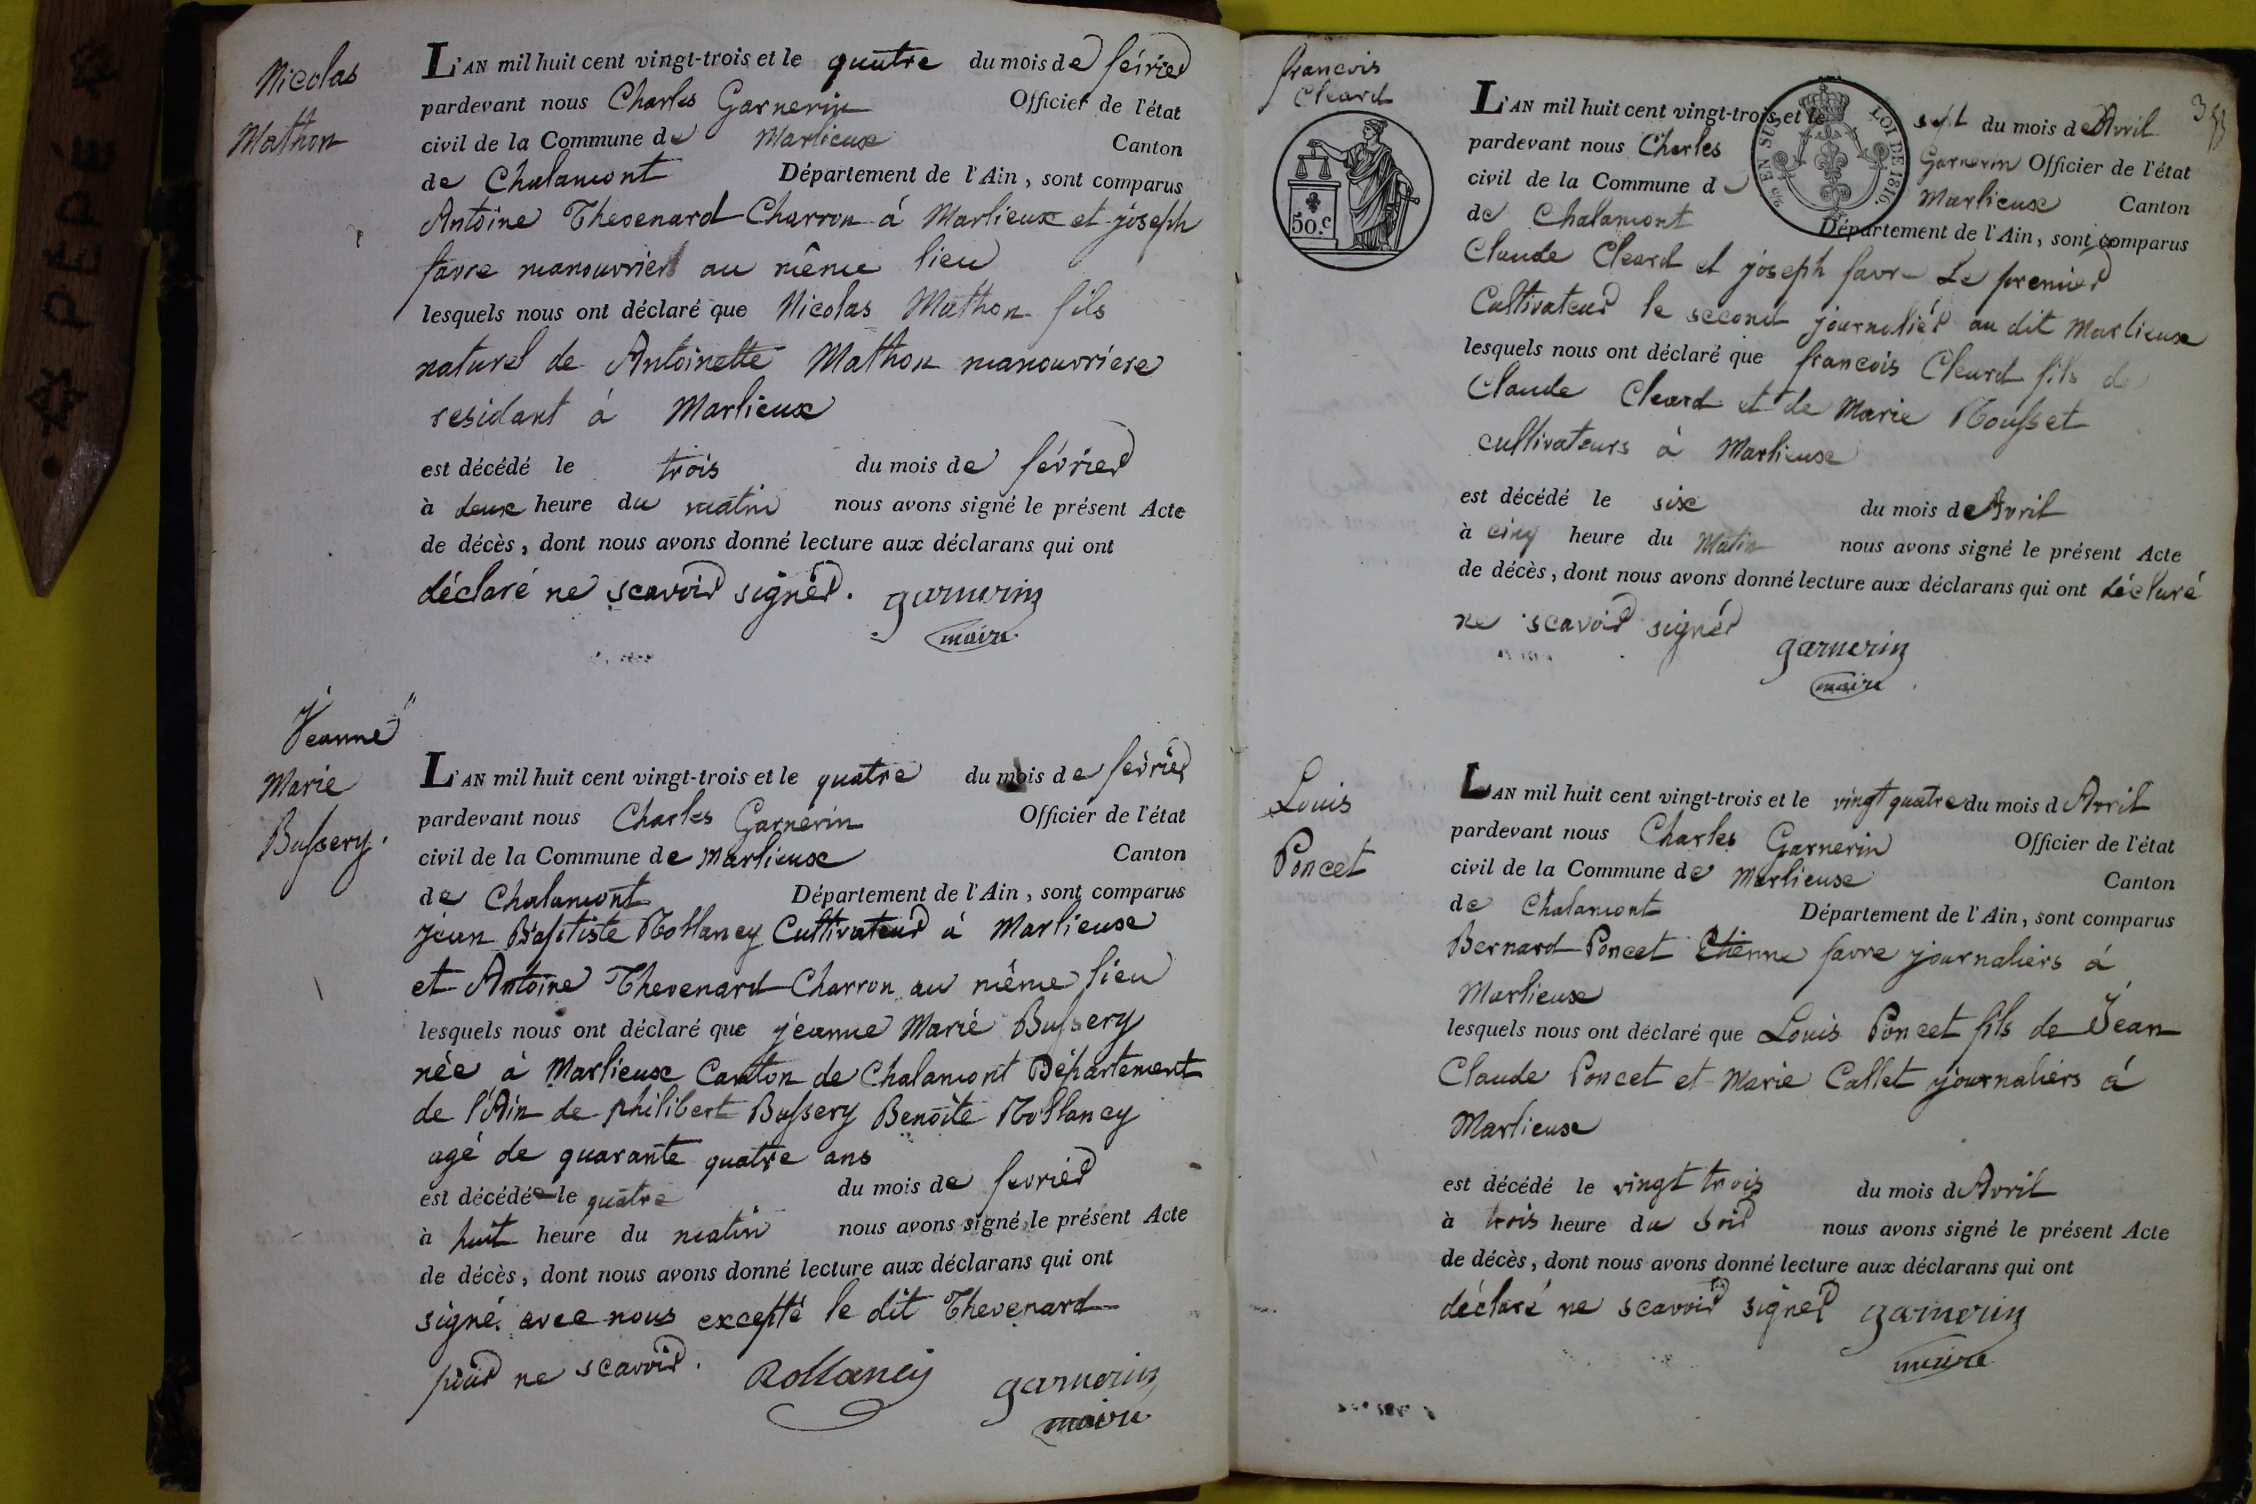 PÉPÉ
Nicolas
Mathon
L'AN mil huit cent vingt-trois et le quatre du mois de février
pardevant nous Charles Garnerin Officier de l'état
civil de la Commune de Marlieux Canton
de Chalamont Département de l'Ain, sont comparus
Antoine Thevenard Charron á Marlieux et joseph
favre manouvrier au même lieu
lesquels nous ont déclaré que Nicolas Mathon fils
naturel de Antoinette Mathon manouvriere
residant á Marlieux
est décédé le trois du mois de février
à deux heure du matin nous avons signé le présent Acte
de décès, dont nous avons donné lecture aux déclarans qui ont
déclaré ne scavoir signer. garnerin
maire
Jeanne
Marie
Bussery.
L'AN mil huit cent vingt-trois et le quatre du mois de février
pardevant nous Charles Garnerin Officier de l'état
civil de la Commune de Marlieux Canton
de Chalamont Département de l'Ain, sont comparus
jean Baptiste Rollancy Cultivateur á Marlieux
et Antoine Thevenard Charron au même lieu
lesquels nous ont déclaré que jeanne Marie Bussery
née à Marlieux Canton de Chalamont Département
de l'Ain de philibert Bussery Benoite Rollancy
agé de quarante quatre ans
est décédée le quatre du mois de fevrier
à huit heure du matin nous avons signé le présent Acte
de décès, dont nous avons donné lecture aux déclarans qui ont
signé avec nous excepté le dit Thevenard
pour ne scavoir. Rollancy garnerin
maire
francois
Cleard
50.c
EN SUS
LOI DE 1816.
L'AN mil huit cent vingt-trois et le sept du mois de Avril
pardevant nous Charles Garnerin Officier de l'état
civil de la Commune de Marlieux Canton
de Chalamont Département de l'Ain, sont comparus
Claude Cleard et joseph favre Le premier
Cultivateur le second journalier au dit Marlieux
lesquels nous ont déclaré que francois Cleard fils de
Claude Cleard et de Marie Rousset
cultivateurs à Marlieux
est décédé le six du mois de Avril
à cinq heure du Matin nous avons signé le présent Acte
de décès, dont nous avons donné lecture aux déclarans qui ont déclaré
ne scavoir signer garnerin
maire
Louis
Poncet
L'AN mil huit cent vingt-trois et le vingt quatre du mois d Avril
pardevant nous Charles Garnerin Officier de l'état
civil de la Commune de Marlieux Canton
de Chalamont Département de l'Ain, sont comparus
Bernard Poncet Etienne favre journaliers á
Marlieux
lesquels nous ont déclaré que Louis Poncet fils de Jean
Claude Poncet et Marie Callet journaliers á
Marlieux
est décédé le vingt trois du mois d Avril
à trois heure du soir nous avons signé le présent Acte
de décès, dont nous avons donné lecture aux déclarans qui ont
déclaré ne scavoir signer garnerin
maire